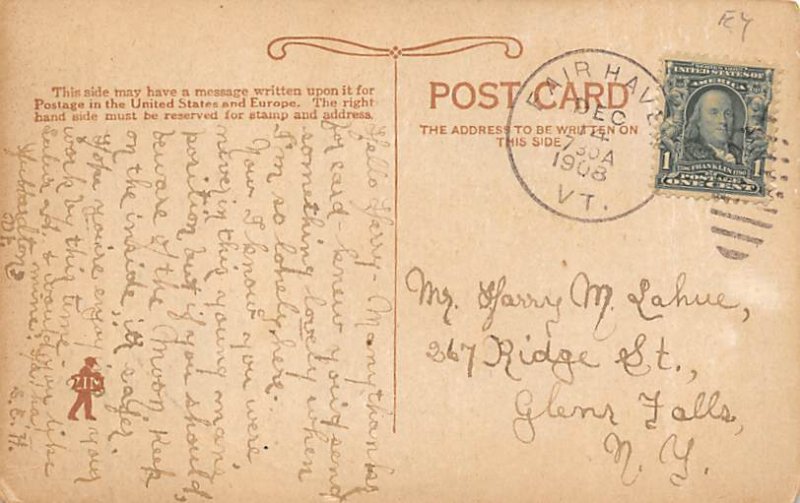 KY
This side may have a message written upon it for
Postage in the United States and Europe. The right
hand side must be reserved for stamp and address.
POST CARD
THE ADDRESS TO BE WRITTEN ON
THIS SIDE
FAIR HAVEN
DEC
14
730A
1908
VT.
SERIES 1902
UNITED STATES OF
AMERICA
FRANKLIN
1 1
POSTAGE
ONE CENT
Hello Harry - Many thanks
for card - knew you'd send
something lovely when
I'm so lonely here.
Now I know you were
never in this young man's
position but if you should,
beware of the Moon keep
on the inside, it's safer.
Hope you're enjoying your
work by this time.
would you like
mine. Ha ha!
Hubbardton
Vt.
S. E. H.
ZIM
Mr. Harry M. Lahue,
267 Ridge St.,
Glens Falls,
N. Y.